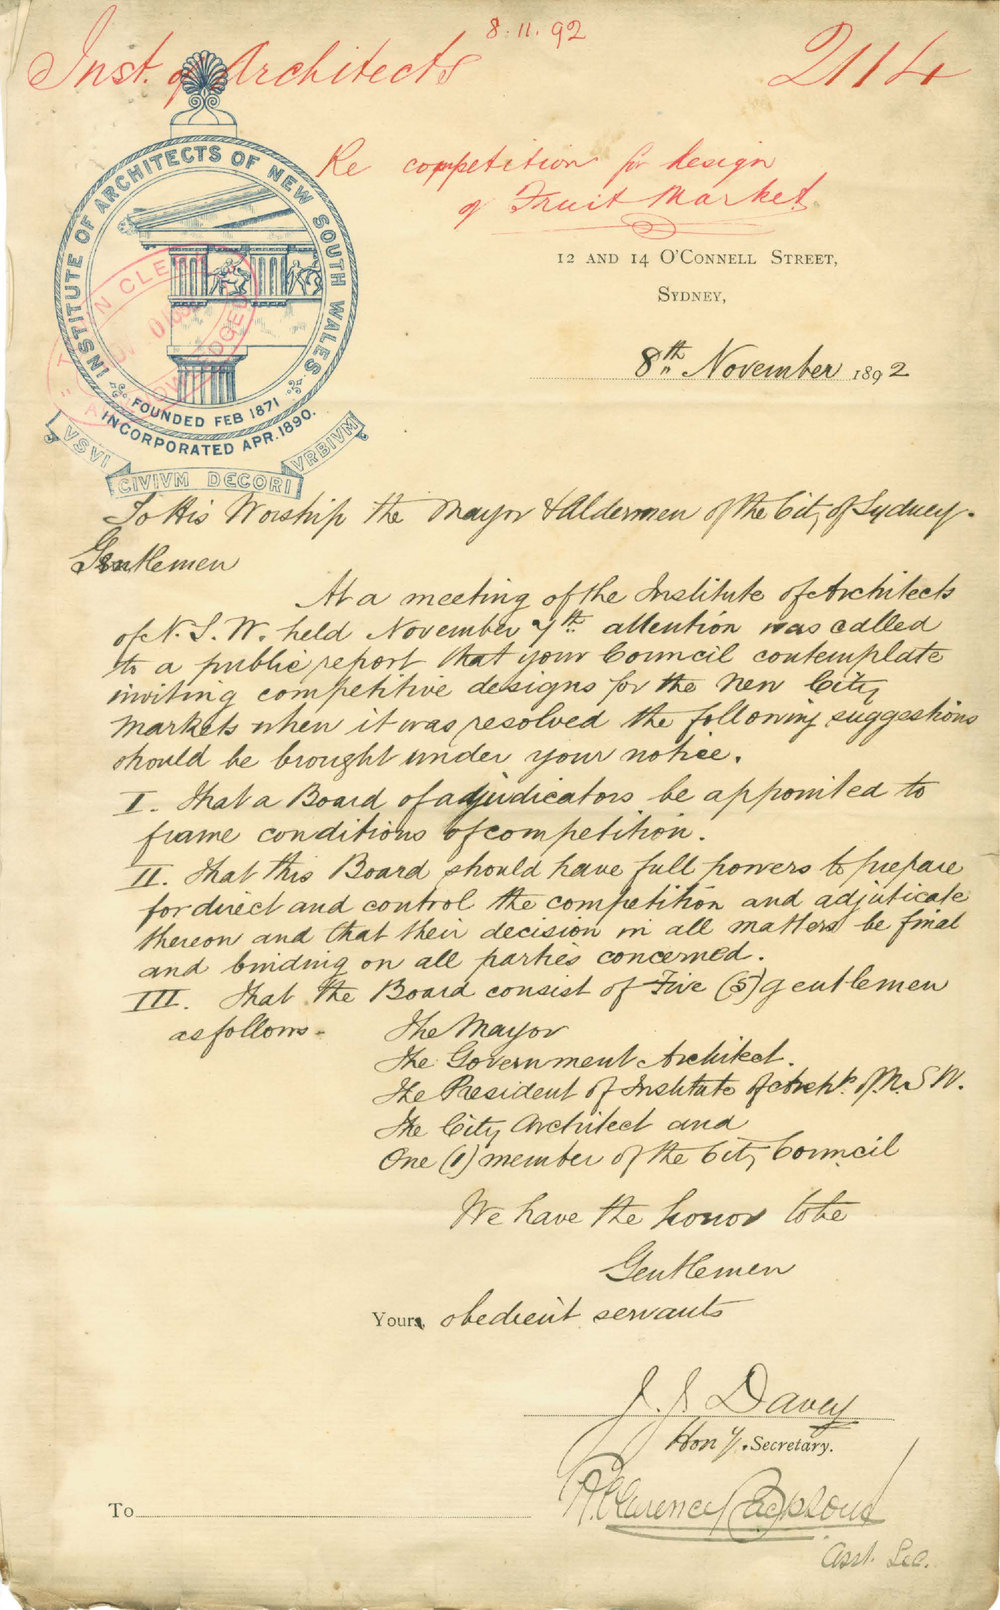 8.11.92
Inst. of Architects
2114
Re competition for design
of Fruit Market
INSTITUTE OF ARCHITECTS OF NEW SOUTH WALES.
FOUNDED FEB 1871
INCORPORATED APR. 1890.
VSVI CIVIVM DECORI VRBIVM
12 AND 14 O'CONNELL STREET,
SYDNEY,
8th November 1892
To His Worship the Mayor & Aldermen of the City of Sydney.
Gentlemen
At a meeting of the Institute of Architects
of N.S.W. held November 7th attention was called
to a public report that your Council contemplate
inviting competitive designs for the new City
Markets when it was resolved the following suggestions
should be brought under your notice.
I. That a Board of adjudicators be appointed to
frame conditions of competition.
II. That this Board should have full powers to prepare
for direct and control the competition and adjuticate
thereon and that their decision in all matters be final
and binding on all parties concerned.
III. That the Board consist of Five (5) gentlemen
as follows - The Mayor
The Government Architect.
The President of Institute of Archts. of N.S.W.
The City Architect and
One (1) member of the City Council
We have the honor to be
Gentlemen
Yours, obedient servants
J. J. Davey
Hony. Secretary.
Clarence Backhouse
To
Asst. Sec.